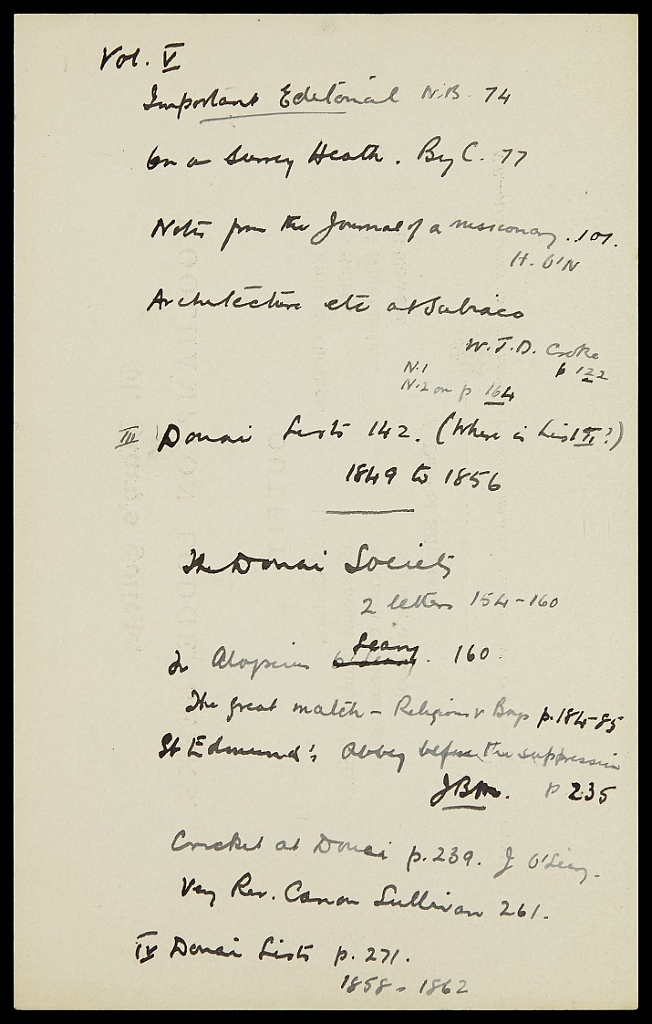 Vol. V
Important Editorial N.B. 74
On a Surrey Heath. By C. 77
Notes from the Journal of a missionary. 101.
H. O'N
Architecture etc at Subiaco
W.J.D. Croke
N.1 p 122
N.2 on p 164
III Douai Lists 142. (Where is List II?)
1849 to 1856
The Douai Society
2 letters 154-160
Aloysius Leary. 160
The great match - Religious v Boys p. 184-85
St Edmund's Abbey before the suppression
JBM. p 235
Cricket at Douai p. 239. J O'Leary.
Very Rev. Canon Sullivan 261.
IV Douai Lists p. 271.
1858 - 1862